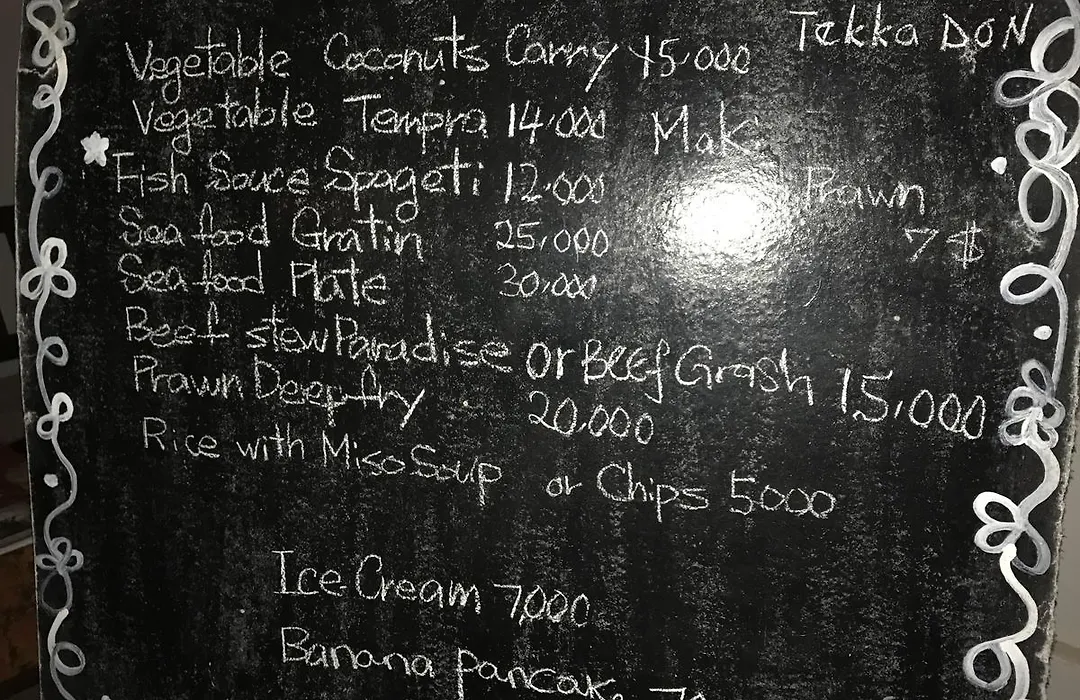 Tekka DON
Vegetable Coconuts Carry 15,000
Vegetable Tempra 14,000
Maki
Fish Sauce Spageti 12.000
Prawn
Sea food Gratin 25,000
7 $
Sea food Plate 30,000
Beef stew Paradise or Beef Grash 15,000
Prawn Deep fry 20,000
Rice with Miso Soup or Chips 5000
Ice Cream 7,000
Banana pancak